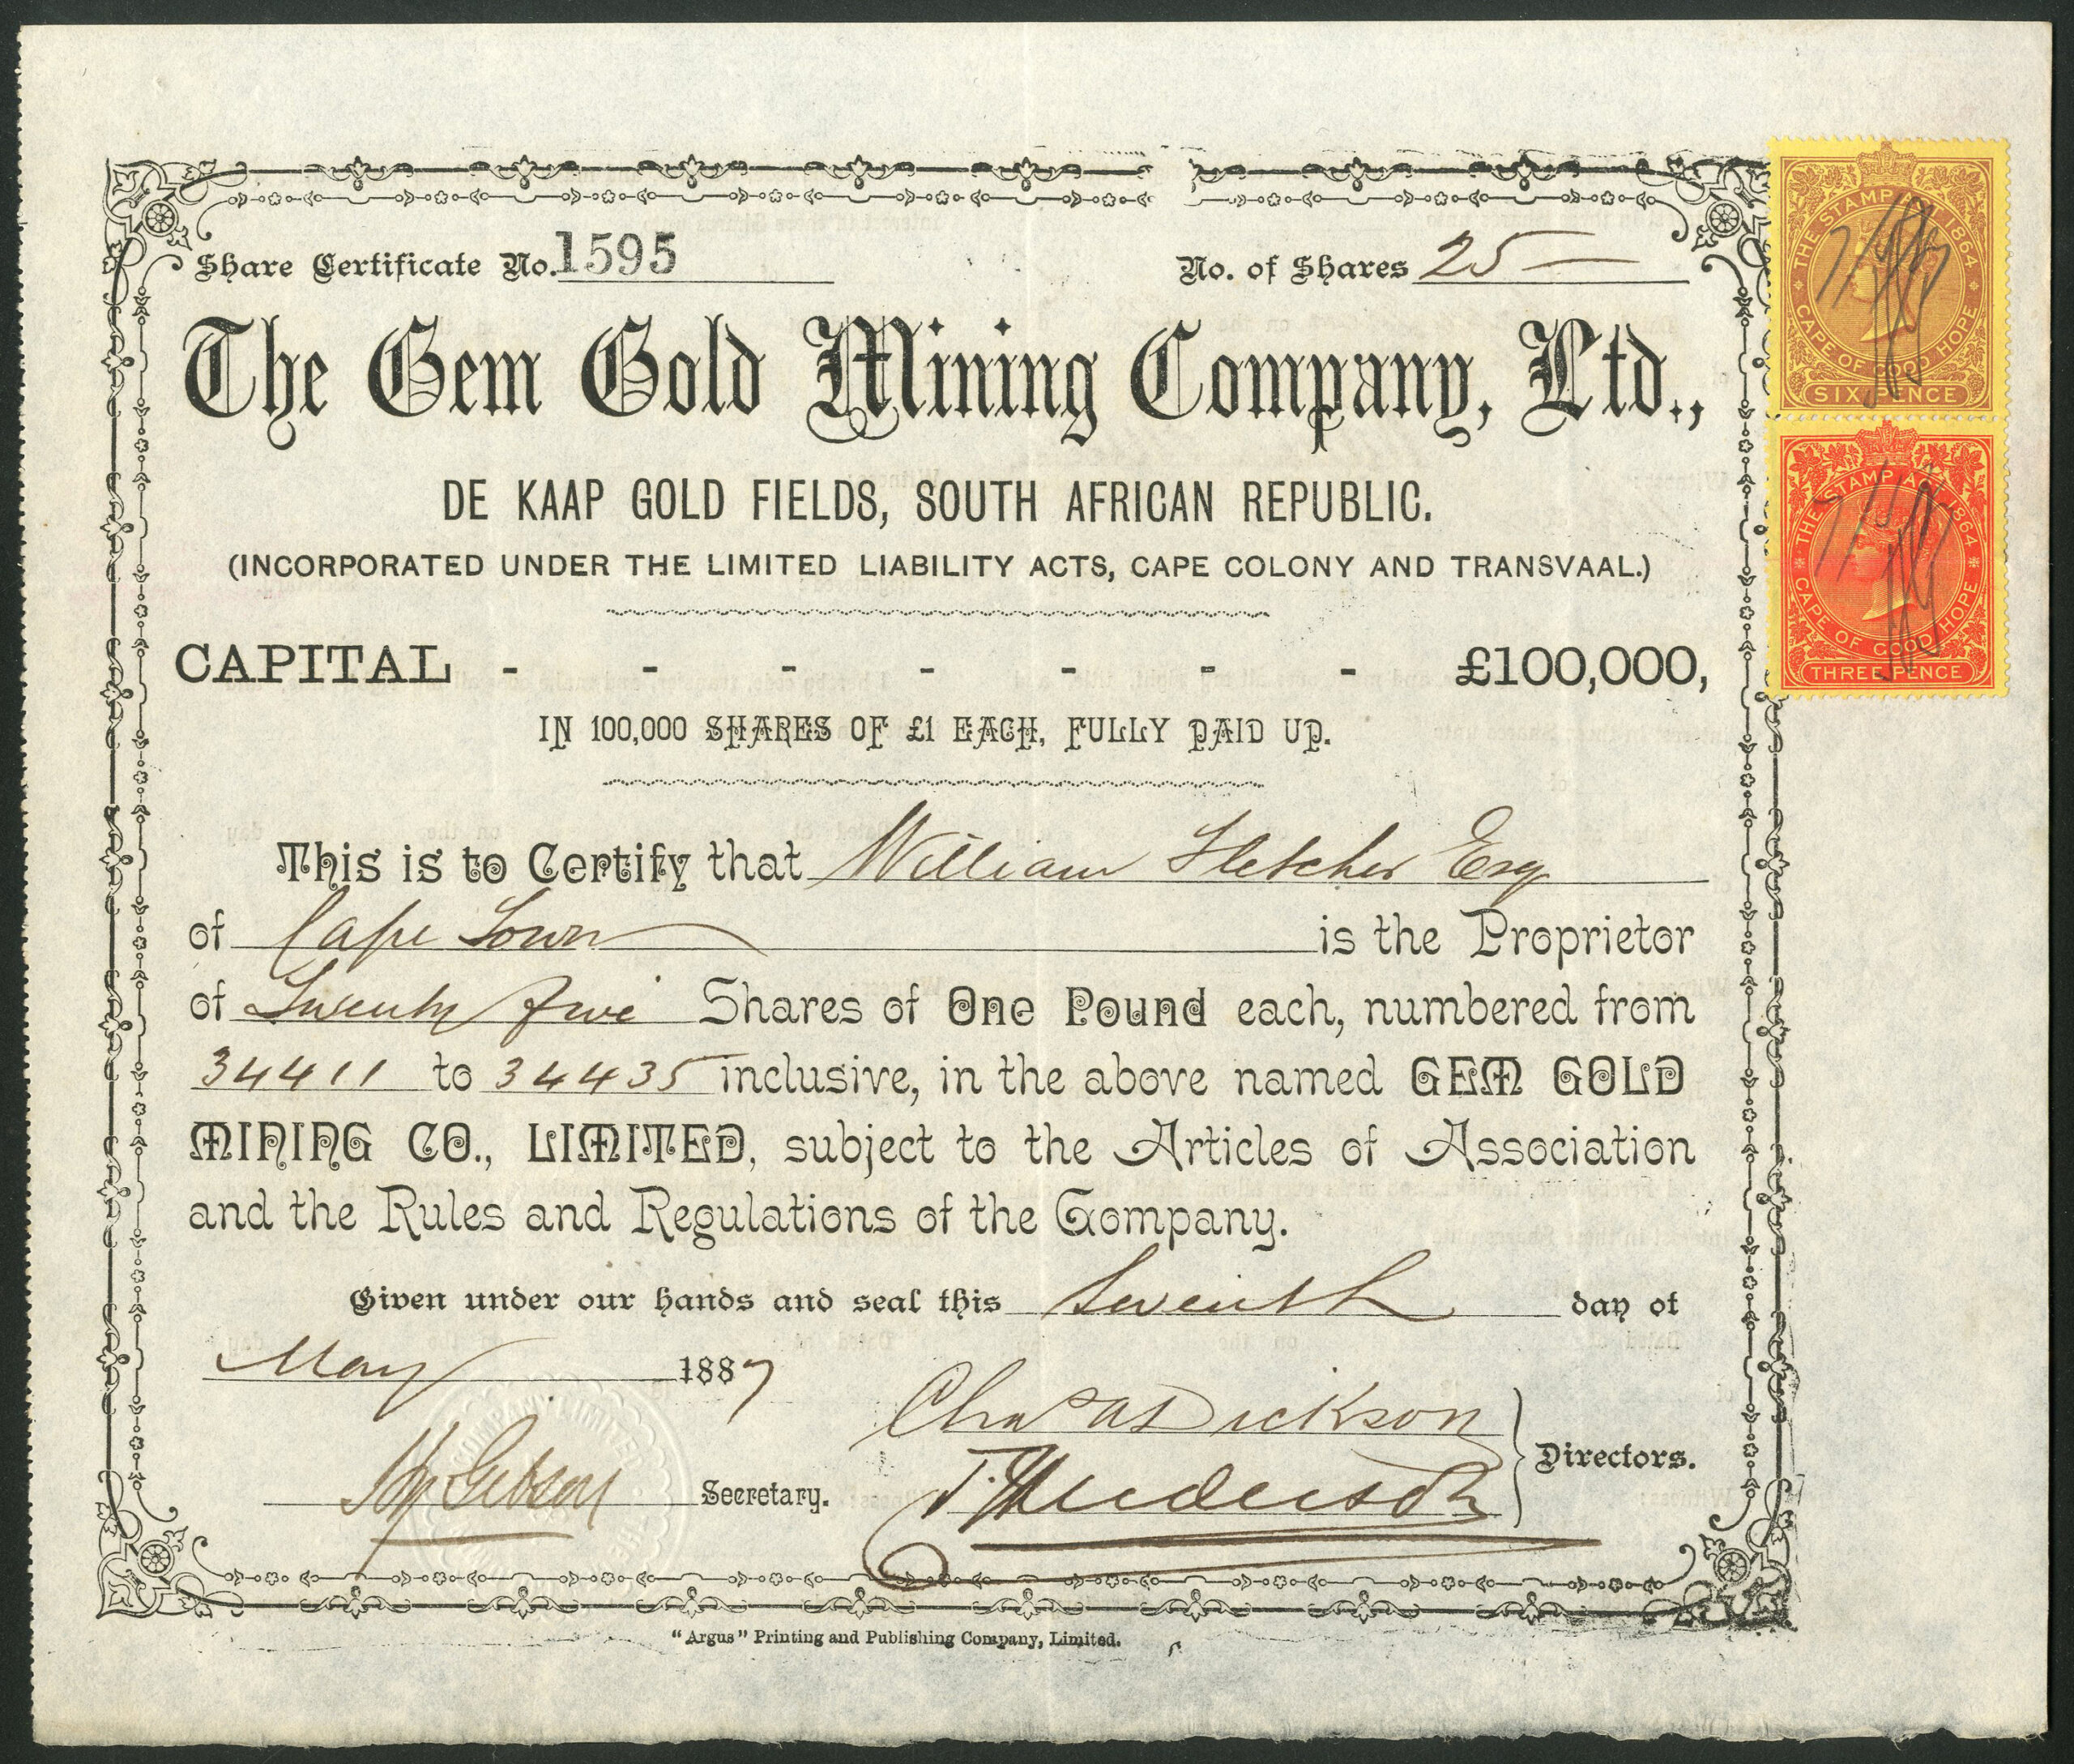 Share Certificate No. 1595
No. of Shares 25 —
The Gem Gold Mining Company, Ltd.,
DE KAAP GOLD FIELDS, SOUTH AFRICAN REPUBLIC.
(INCORPORATED UNDER THE LIMITED LIABILITY ACTS, CAPE COLONY AND TRANSVAAL.)
CAPITAL - - - - - - - £100,000,
IN 100,000 SHARES OF £1 EACH, FULLY PAID UP.
This is to Certify that William Fletcher Esq
of Cape Town is the Proprietor
of Twenty five Shares of One Pound each, numbered from
34411 to 34435 inclusive, in the above named GEM GOLD
MINING CO., LIMITED, subject to the Articles of Association
and the Rules and Regulations of the Company.
Given under our hands and seal this Seventh day of
May 1887
Chas Dickson
Gibson Secretary.
T. Anderson
Directors.
"Argus" Printing and Publishing Company, Limited.
THE STAMP ACT 1864
CAPE OF GOOD HOPE
SIX PENCE
THE STAMP ACT 1864
CAPE OF GOOD HOPE
THREE PENCE
COMPANY LIMITED